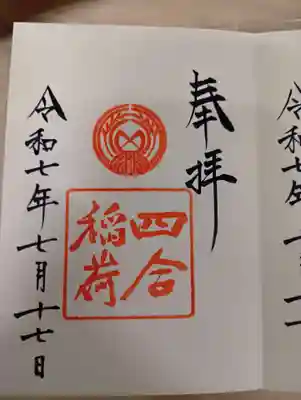 令和七年
奉拝
四合
稲荷
令和七年七月十七日